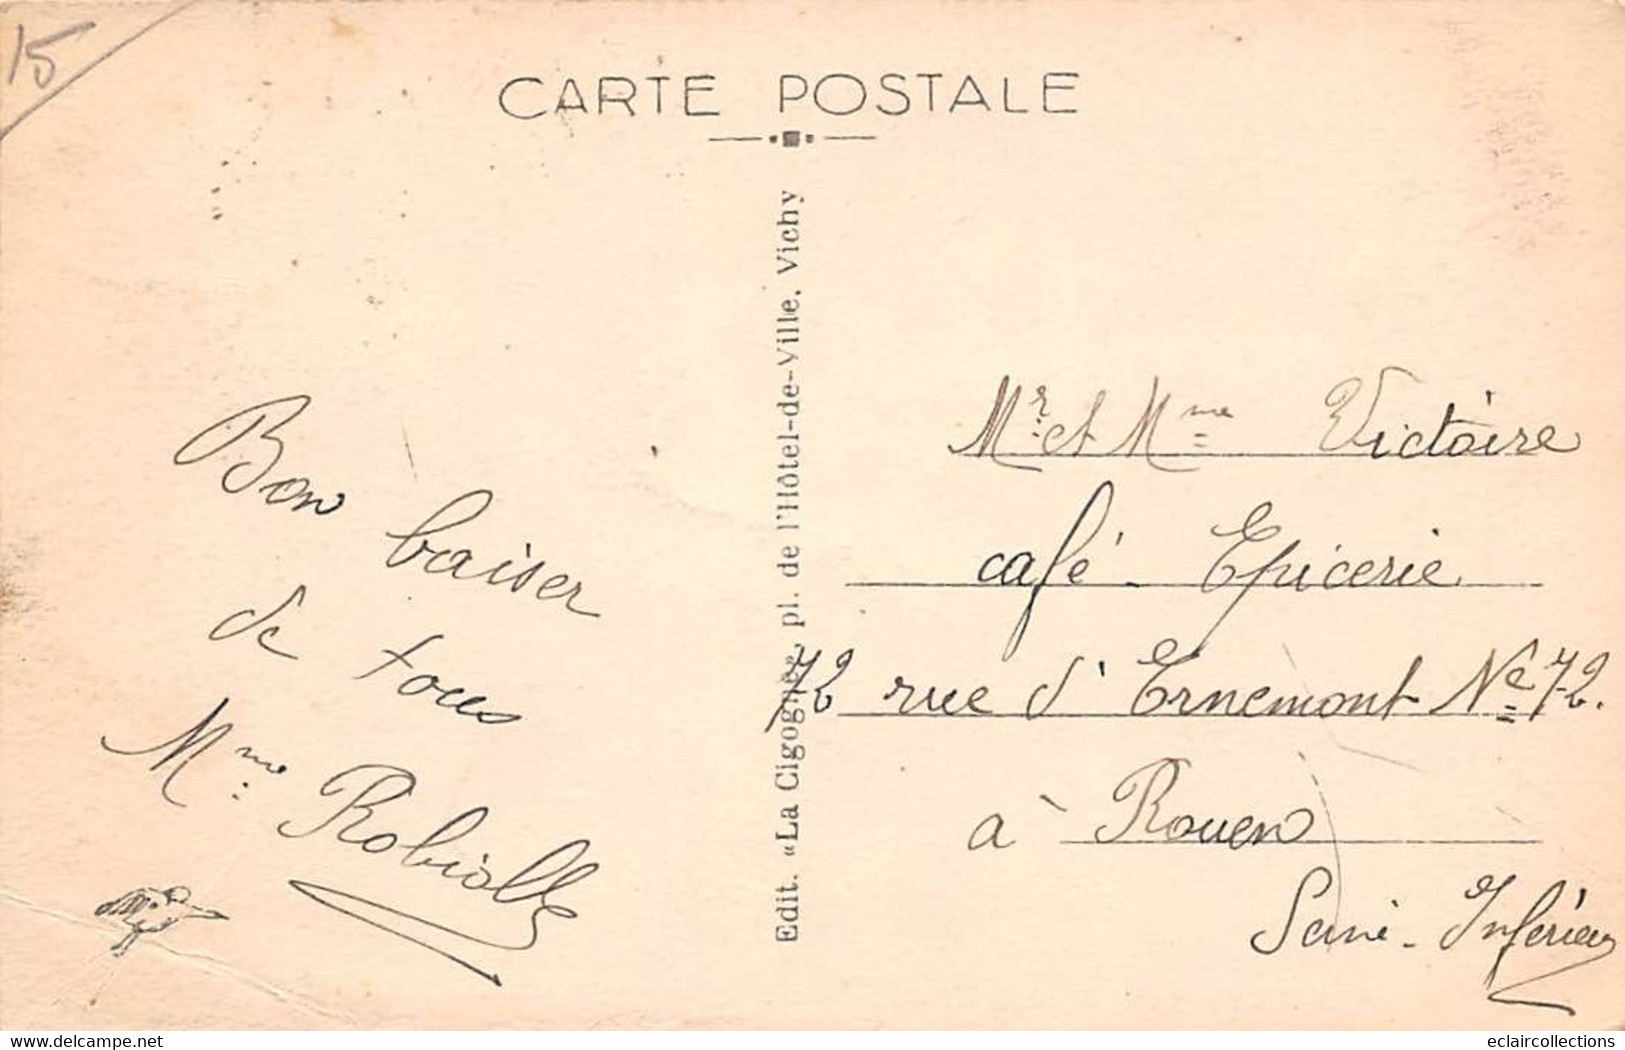 15
CARTE POSTALE
Edit. «La Cigogne», pl. de l'Hôtel-de-Ville, Vichy
Bon baiser
de tous
Mme Robiolle
Mr et Mme Victoire
café - Epicerie
72 rue d'Ernemont No 72.
à Rouen
Seine - Inférieure
delcampe.net
eclaircollections